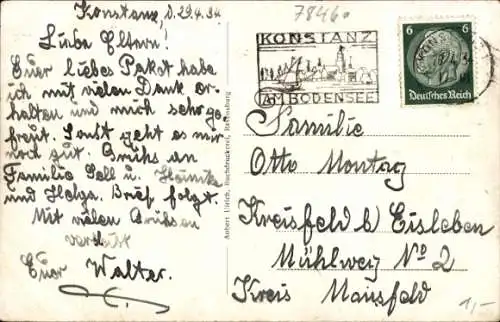 Konstanz, d. 29.4.34.
Liebe Eltern!
Euer liebes Paket habe
ich mit vielen Dank er-
halten und mich sehr ge-
freut. Sonst geht es mir
noch gut. Grühs an
Familie Sell u.
und Helga. Brief folgt.
Mit vielen Grühsen
verbleibt
Euer Walter.
78460
KONSTANZ
AM BODENSEE
6 6
Deutsches Reich
Familie
Otto Montag
Kreisfeld b/ Eisleben
Mühlweg No 2
Kreis Mansfeld
1,-
Anbert Ulrich, Buchdruckerei, Ravensburg